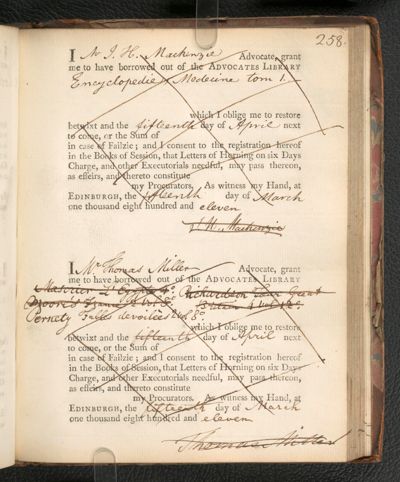 258.
I Mr J. H. Mackenzie Advocate, grant
me to have borrowed out of the ADVOCATES LIBRARY
Encyclopedie Medecine tom 1.
which I oblige me to restore
betwixt and the fifteenth day of April next
to come, or the Sum of
in case of Failzie; and I consent to the registration hereof
in the Books of Session, that Letters of Horning on six Days
Charge, and other Executorials needful, may pass thereon,
as effeirs, and thereto constitute
my Procurators. As witness my Hand, at
EDINBURGH, the fifteenth day of March
one thousand eight hundred and eleven
J. H. Mackenzie
I Mr Thomas Miller Advocate, grant
me to have borrowed out of the ADVOCATES LIBRARY
Richardson
Moore's France
Pernety Fables devoilées 2 vol 8o.
which I oblige me to restore
betwixt and the fifteenth day of April next
to come, or the Sum of
in case of Failzie; and I consent to the registration hereof
in the Books of Session, that Letters of Horning on six Days
Charge, and other Executorials needful, may pass thereon,
as effeirs, and thereto constitute
my Procurators. As witness my Hand, at
EDINBURGH, the fifteenth day of March
one thousand eight hundred and eleven
Thomas Miller